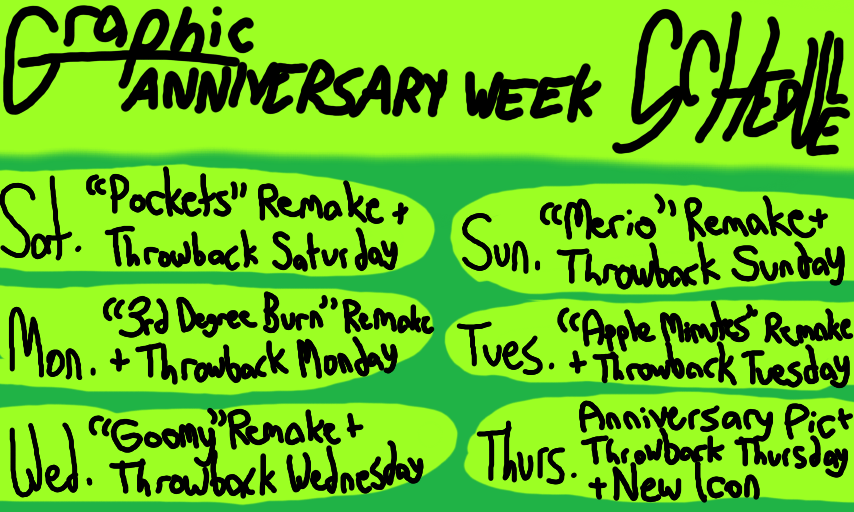 Graphic
ANNIVERSARY WEEK SCHEDULE
Sat. "Pockets" Remake +
Throwback Saturday
Sun. "Merio" Remake+
Throwback Sunday
Mon. "3rd Degree Burn" Remake
+ Throwback Monday
Tues. "Apple Minutes" Remake
+ Throwback Tuesday
Wed. "Goomy" Remake +
Throwback Wednesday
Thurs. Anniversary Pic+
Throwback Thursday
+ New Icon